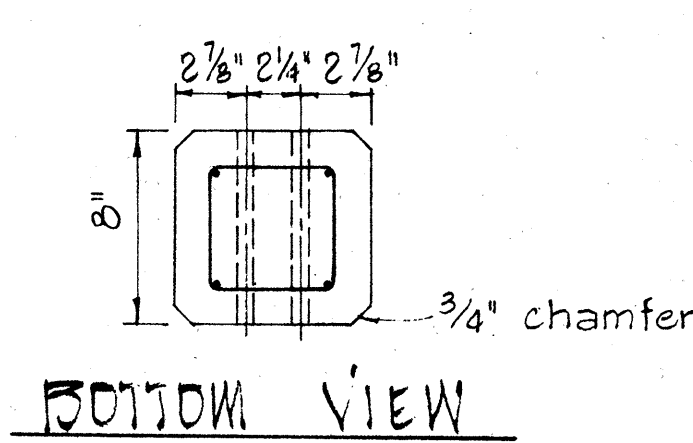 2 7/8" 2 1/4" 2 7/8"
8"
3/4" chamfer
BOTTOM VIEW